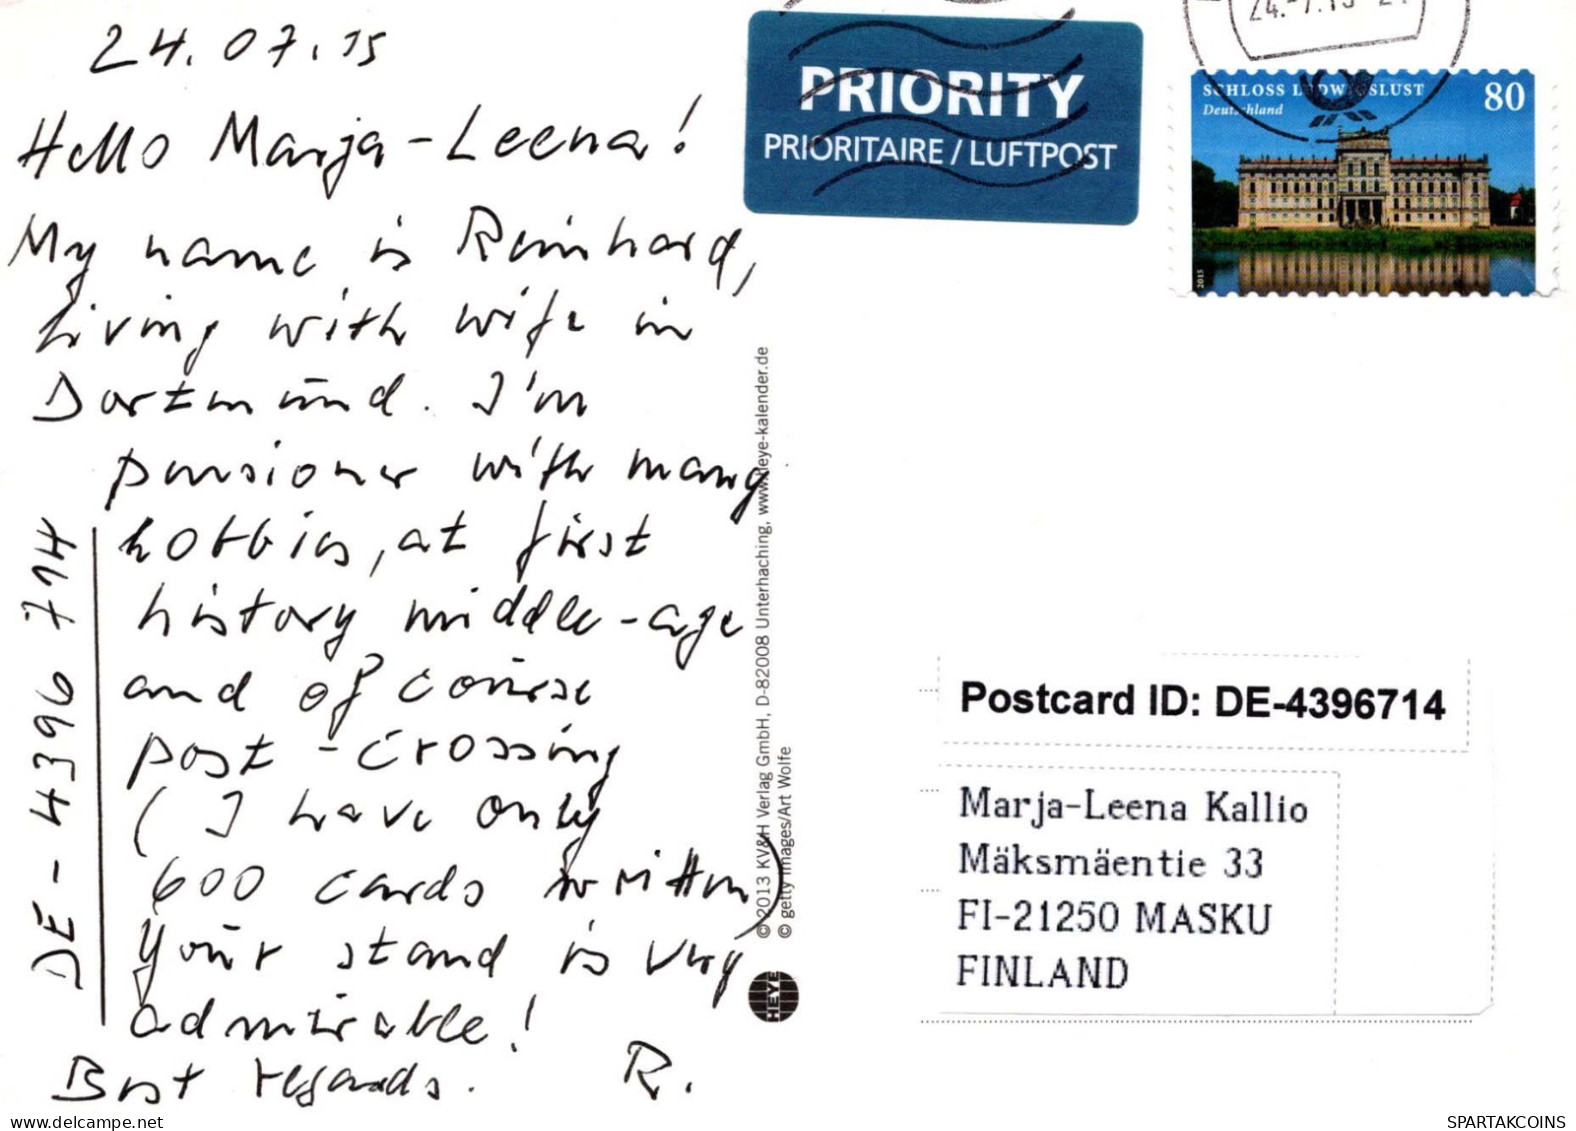 24.07.15
Hello Marja-Leena!
My name is Reinhard,
living with wife in
Dortmund. I'm
pensioner with many
hobbies, at first
history middle-age
and of course
post-crossing
(I have only
600 cards written)
Your stand is very
admirable!
Best regards. R.
DE-4396714
PRIORITY
PRIORITAIRE / LUFTPOST
24.-7.15
SCHLOSS LUDWIGSLUST
Deutschland
80
2015
© 2013 KV&H Verlag GmbH, D-82008 Unterhaching, www.heye-kalender.de
© getty images/Art Wolfe
HEYE
Postcard ID: DE-4396714
Marja-Leena Kallio
Mäksmäentie 33
FI-21250 MASKU
FINLAND
www.delcampe.net
SPARTAKCOINS